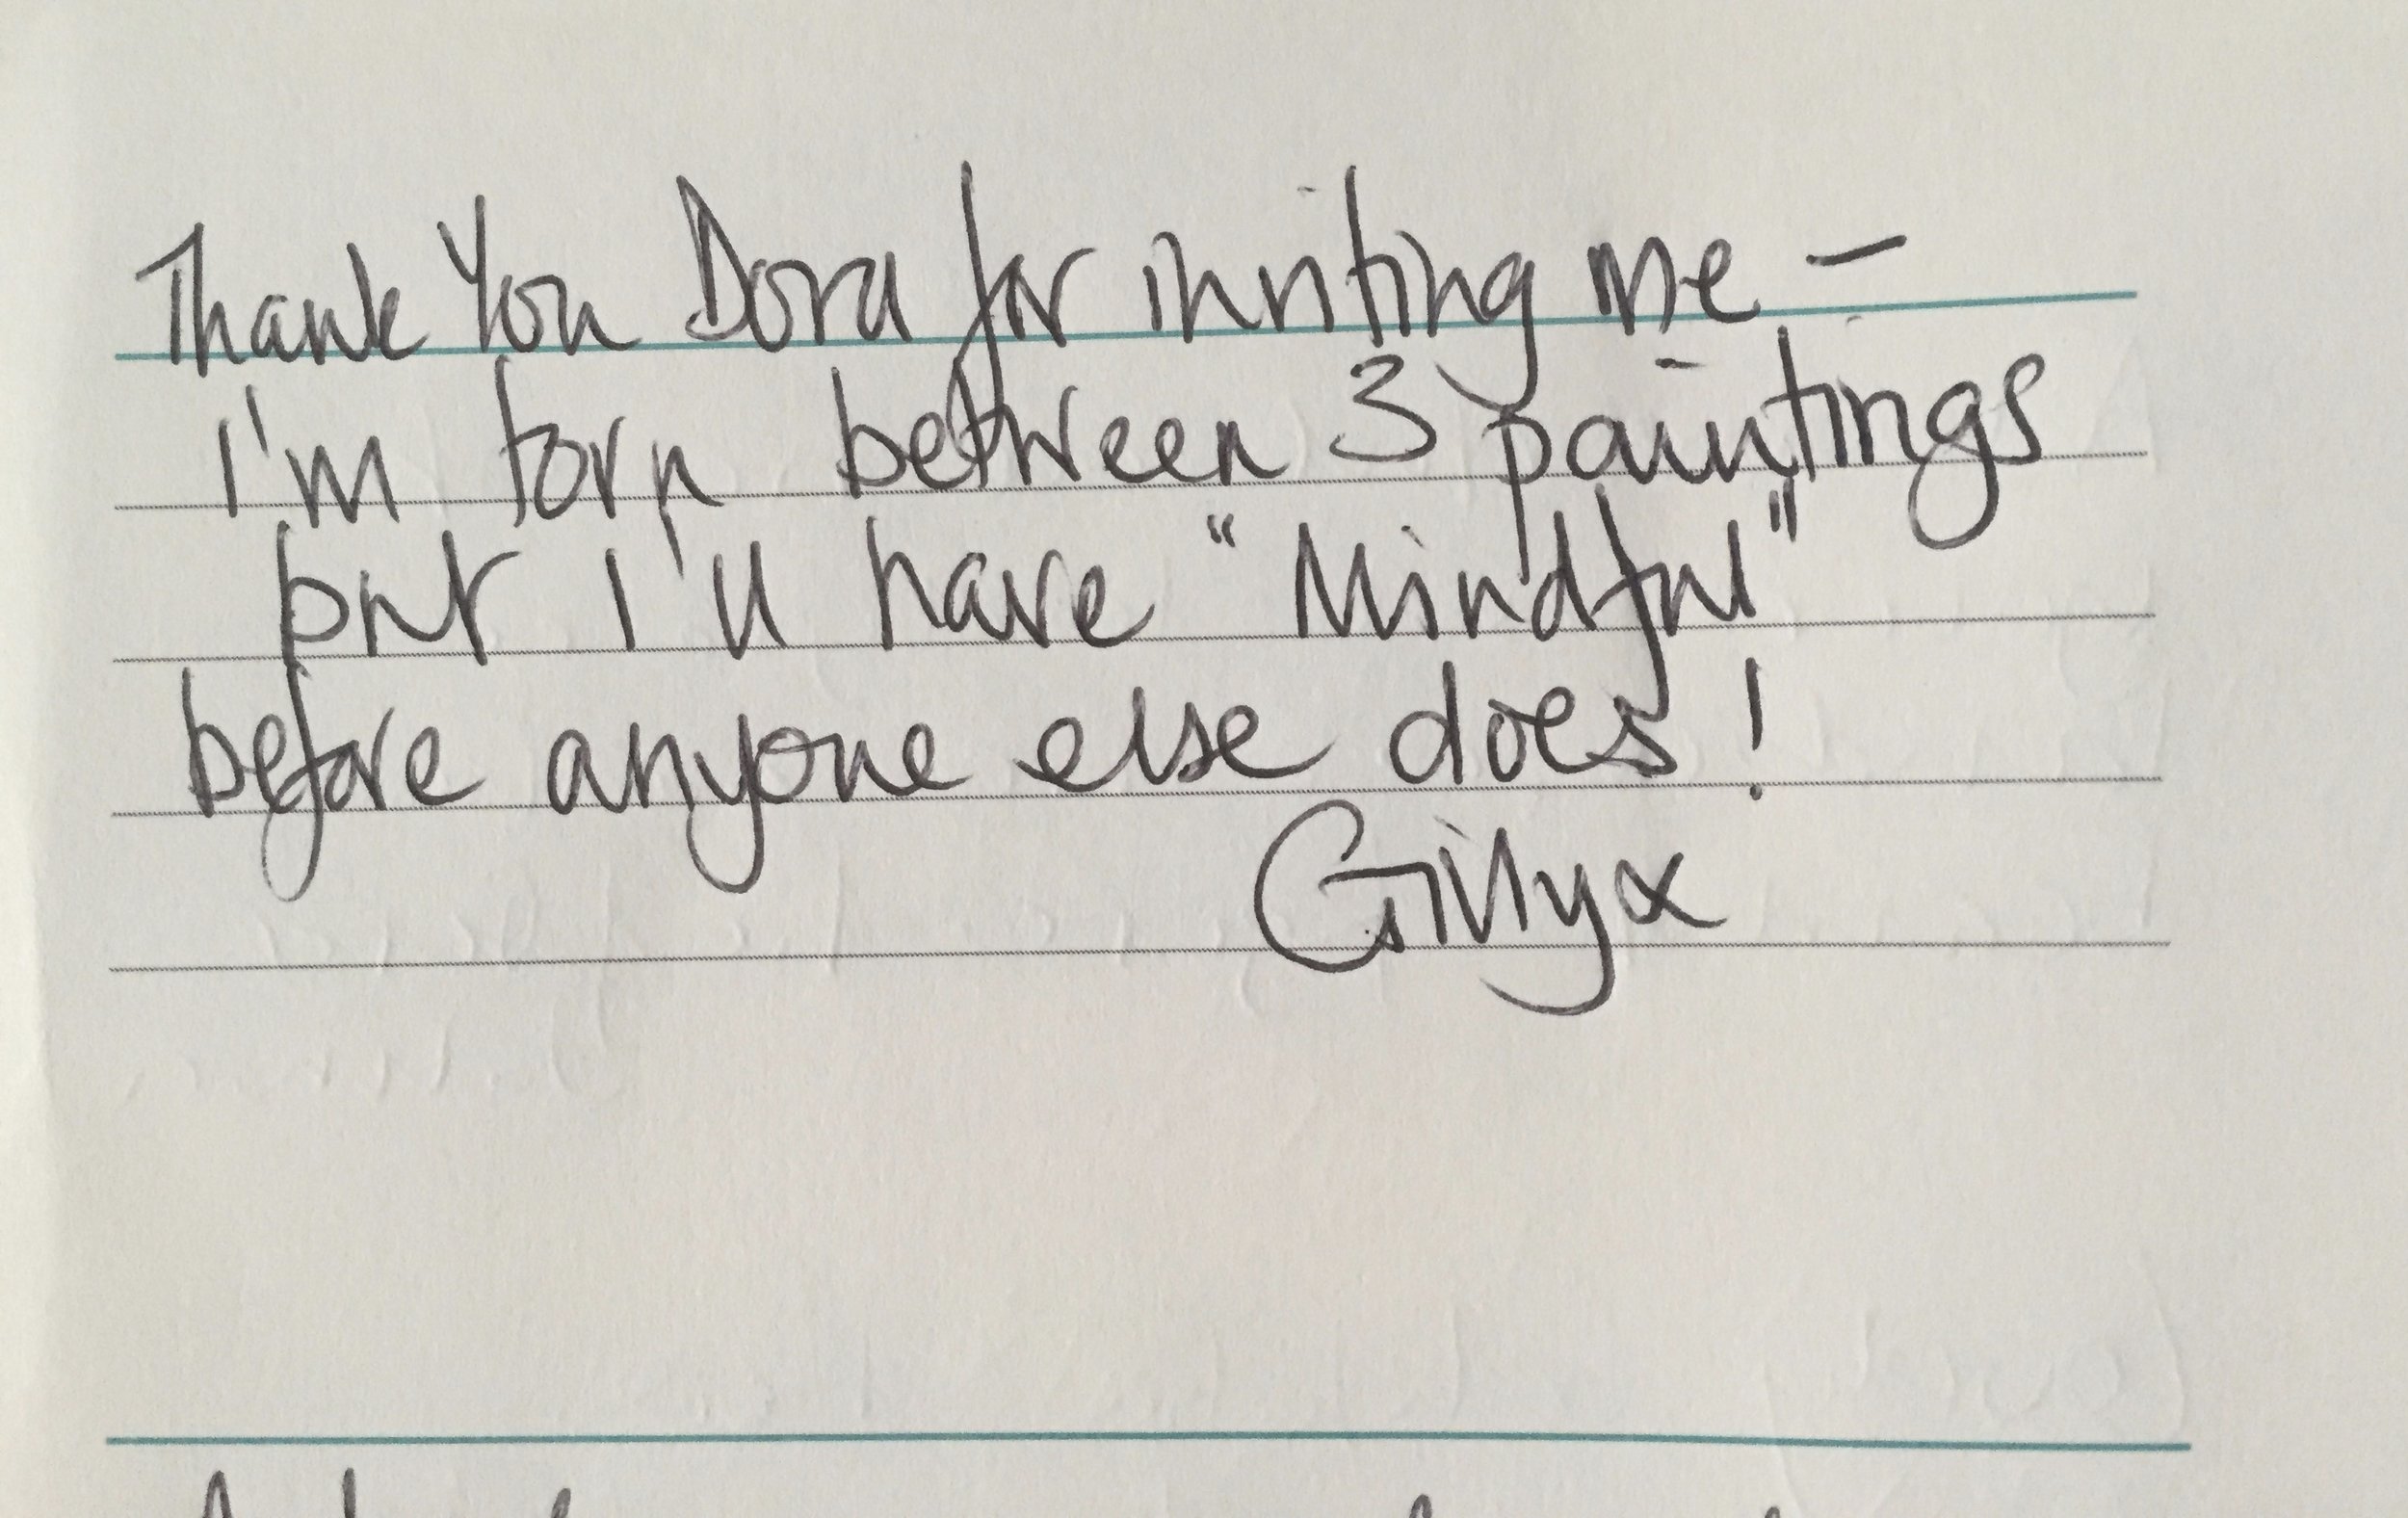 Thank You Dora for inviting me –
I'm torn between 3 paintings
but I'll have "Mindful"
before anyone else does!
Gilly x